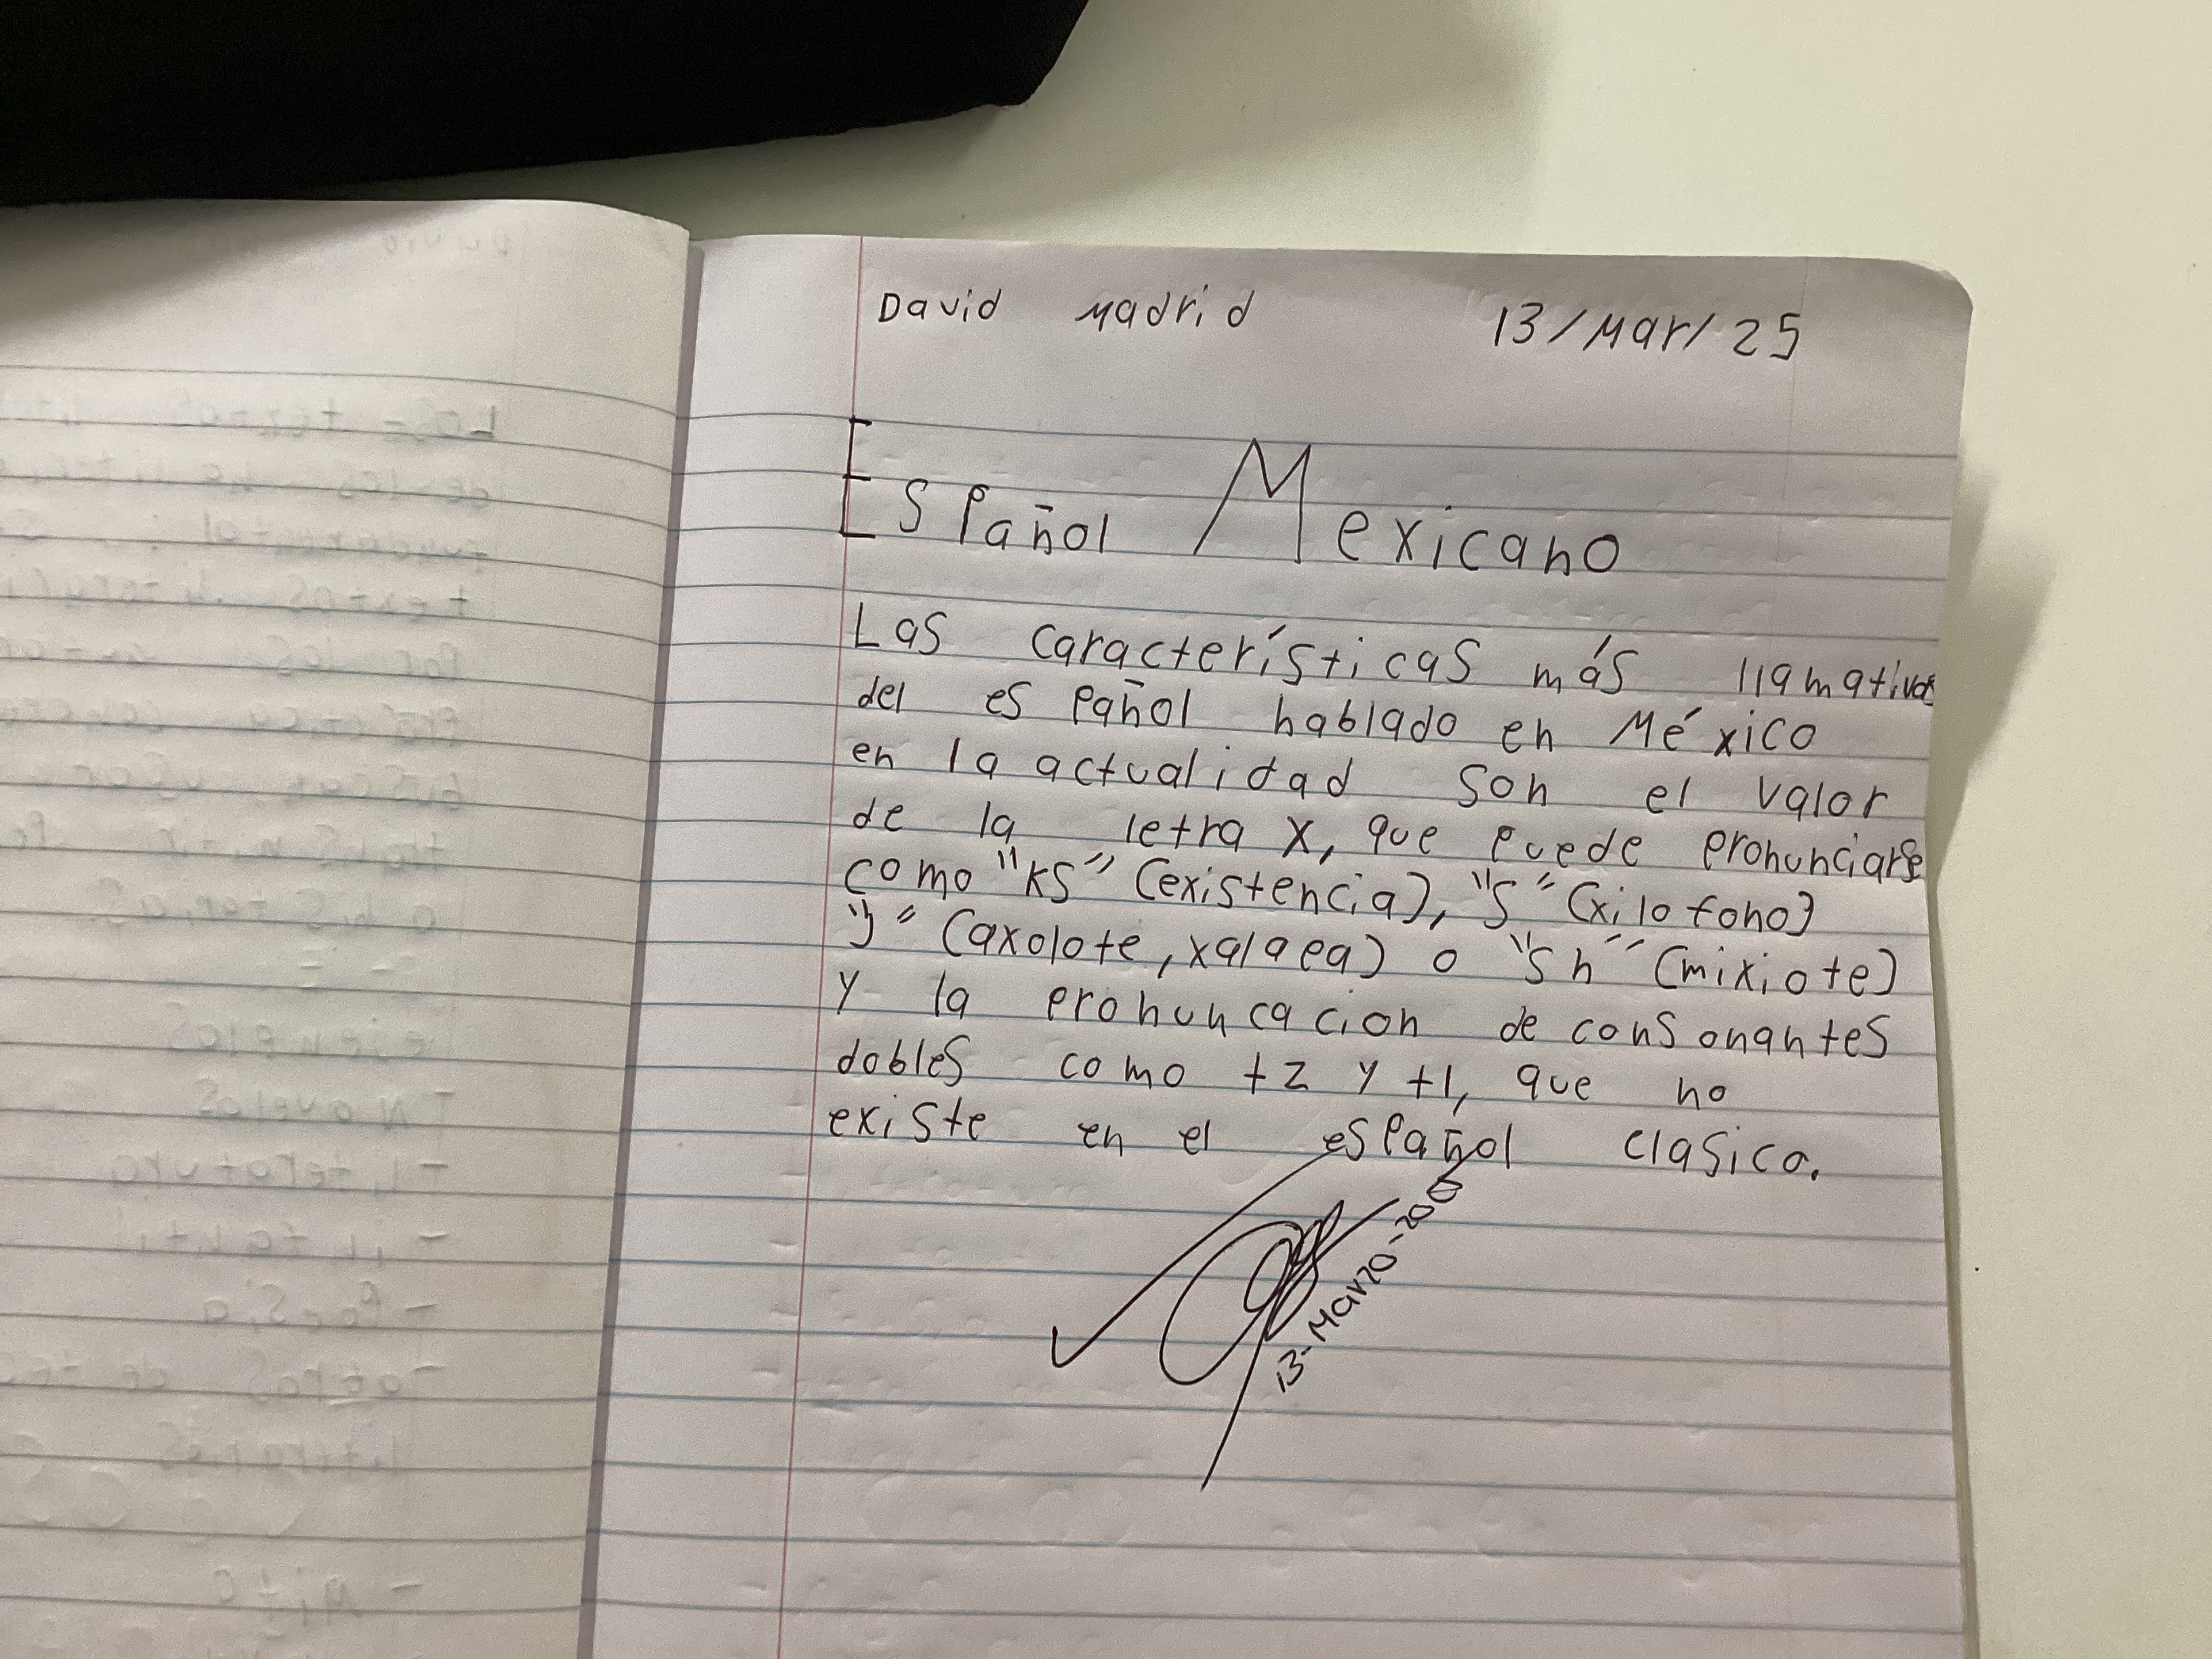 David Madrid 13/Mar/25
Español Mexicano
Las características más llamativas
del español hablado en México
en la actualidad son el valor
de la letra x, que puede pronunciarse
como "ks" (existencia), "s" (xilofono)
"j" (axolote, xalapa) o "sh" (mixiote)
y la pronuncacion de consonantes
dobles como tz y tl, que no
existe en el español clasico.
13-Marzo-